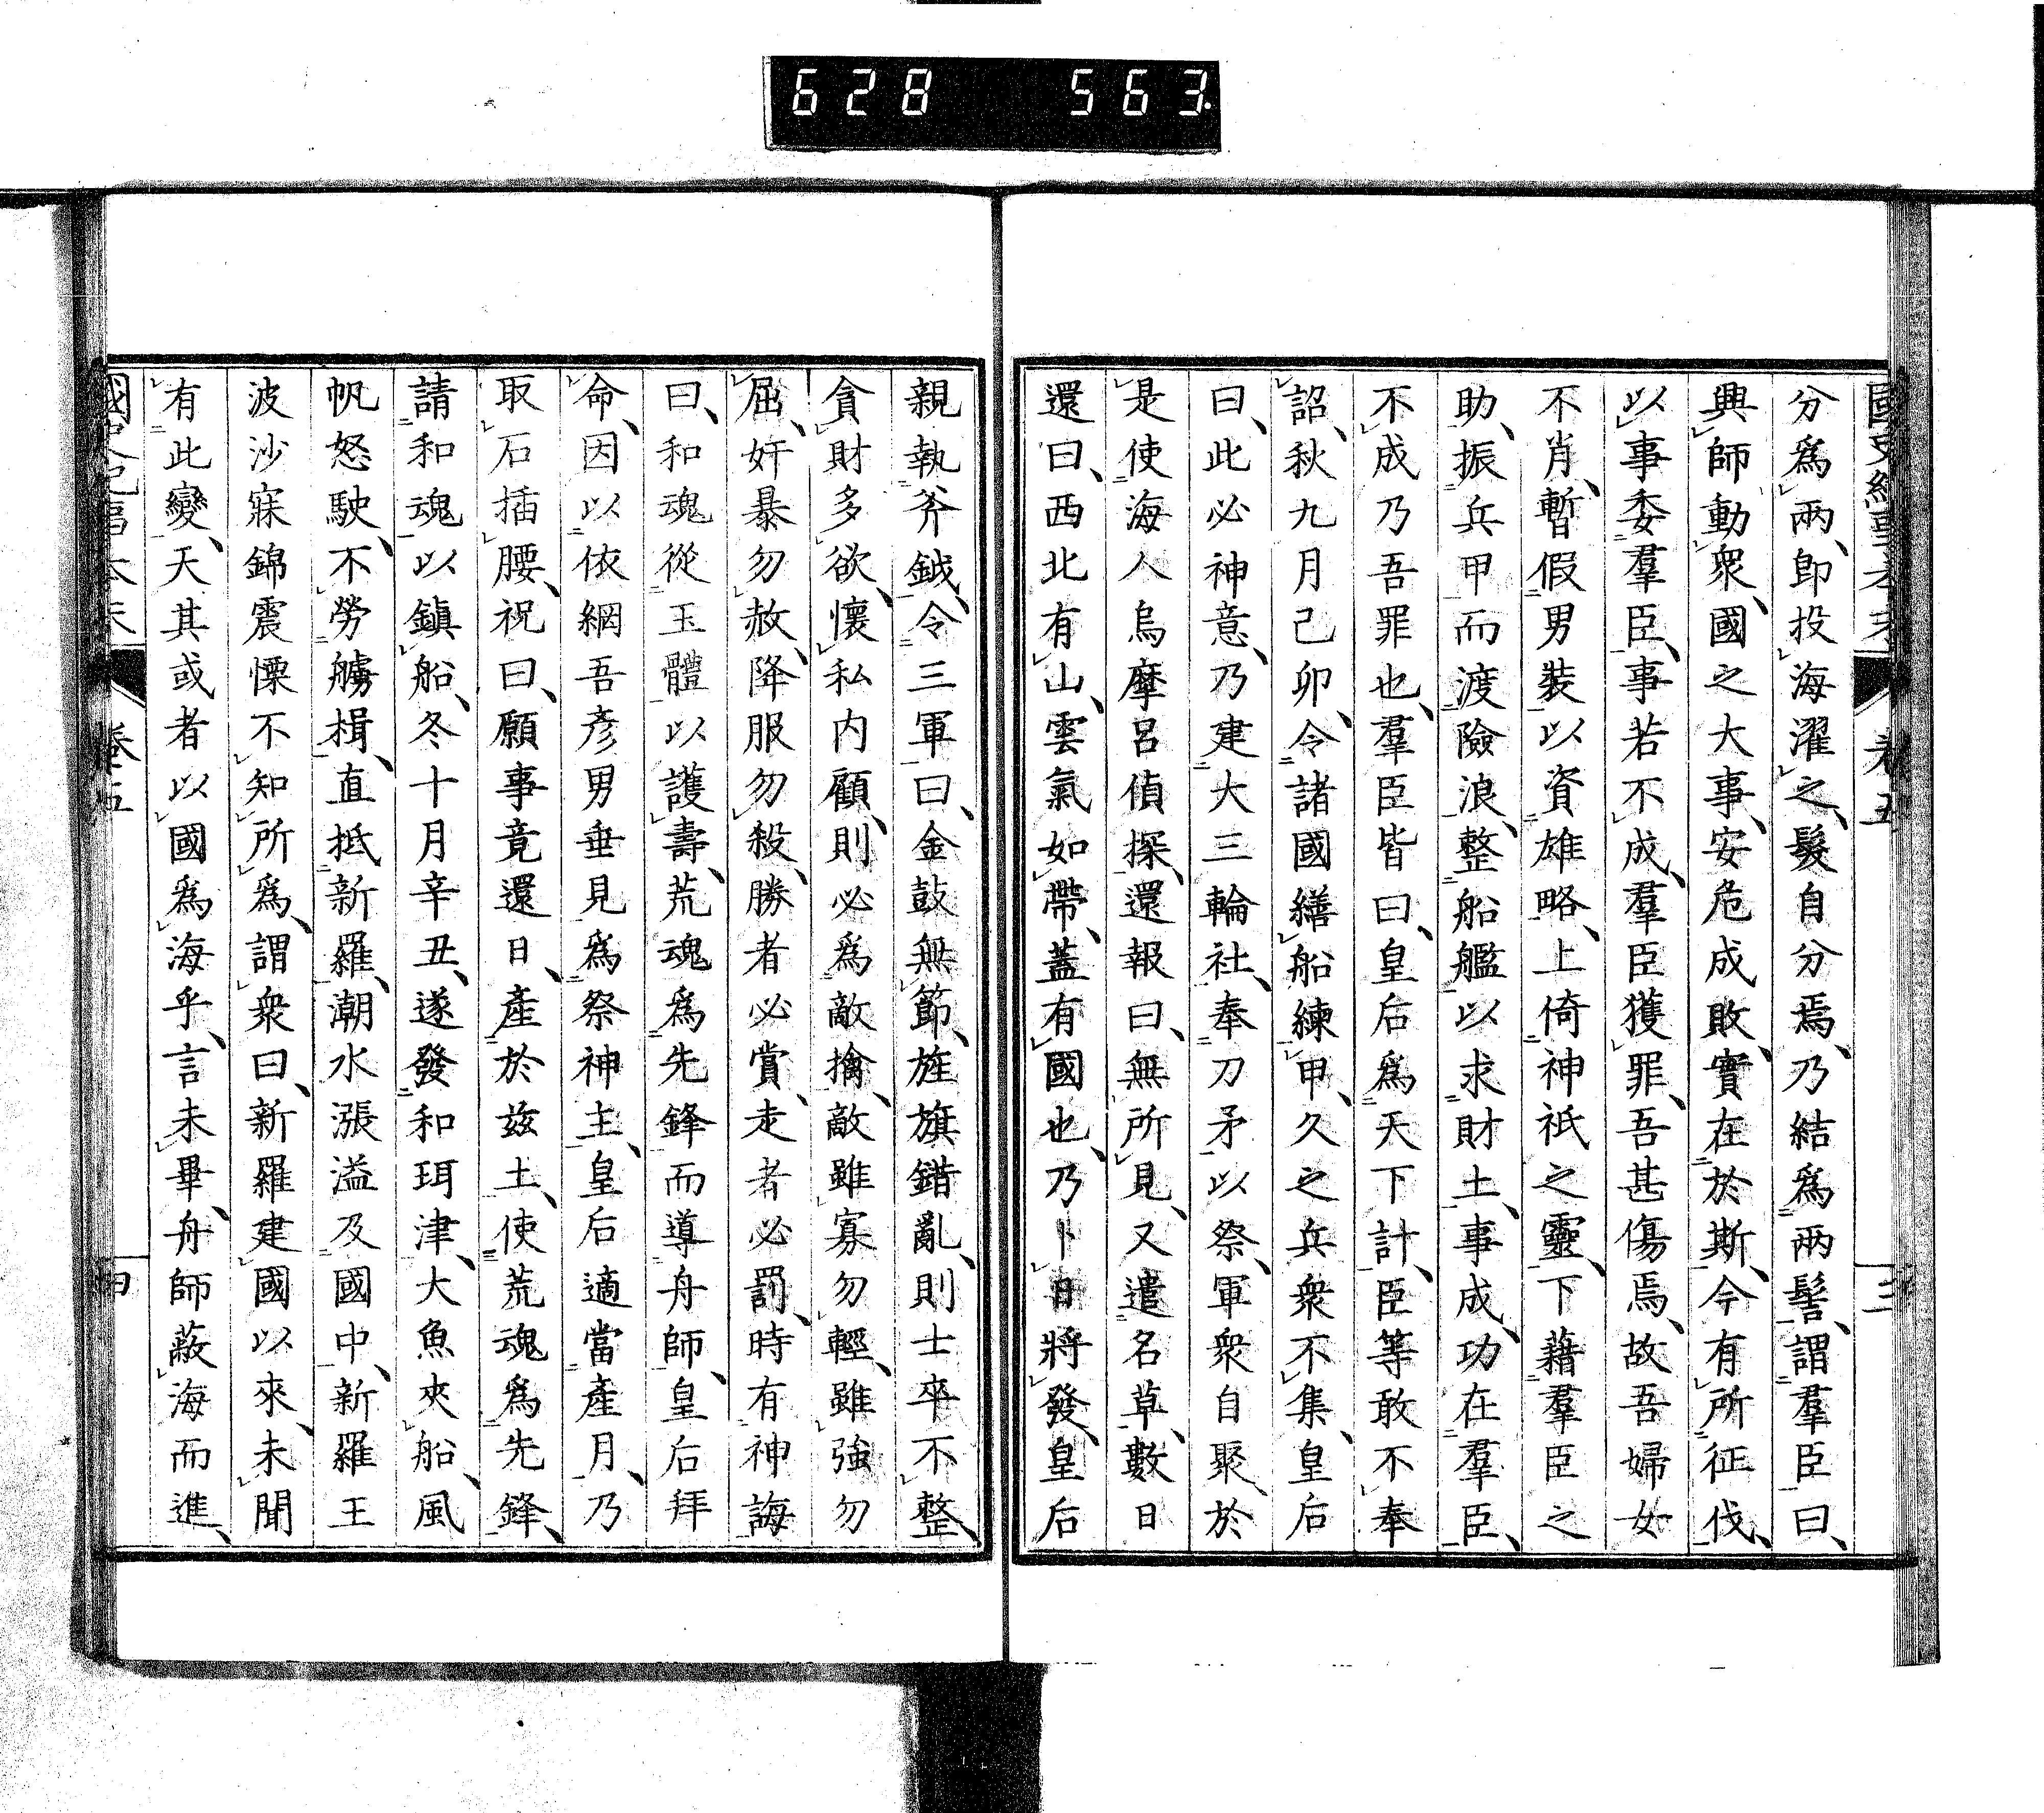 628 563.
分爲兩、卽投海濯之、髮自分焉、乃結爲兩髻、謂羣臣曰、
興師動衆、國之大事、安危成敗、實在於斯、今有所征伐、
以事委羣臣、事若不成、羣臣獲罪、吾甚傷焉、故吾婦女
不肖、暫假男裝以資雄略、上倚神祇之靈、下藉羣臣之
助、振兵甲而渡險浪、整船艦以求財土、事成、功在羣臣、
不成乃吾罪也、羣臣皆曰、皇后爲天下計、臣等敢不奉
詔、秋九月己卯、令諸國繕船練甲、久之兵衆不集、皇后
曰、此必神意、乃建大三輪社、奉刀矛以祭、軍衆自聚、於
是使海人烏摩呂偵探、還報曰、無所見、又遣名草、數日
還曰、西北有山、雲氣如帶、蓋有國也、乃卜日將發、皇后
親執斧鉞、令三軍曰、金鼓無節、旌旗錯亂、則士卒不整、
貪財多欲、懷私内顧、則必爲敵擒、敵雖寡勿輕、雖強勿
屈、奸暴勿赦、降服勿殺、勝者必賞、走者必罰、時有神誨
曰、和魂從玉體以護壽、荒魂爲先鋒而導舟師、皇后拜
命、因以依網吾彦男垂見爲祭神主、皇后適當產月、乃
取石插腰、祝曰、願事竟還日、產於茲土、使荒魂爲先鋒、
請和魂以鎮船、冬十月辛丑、遂發和珥津、大魚夾船、風
帆怒駛、不勞艣楫、直抵新羅、潮水漲溢及國中、新羅王
波沙寐錦震慄不知所爲、謂衆曰、新羅建國以來、未聞
有此變、天其或者以國爲海乎、言未畢、舟師蔽海而進、
國史紀事本末 卷五 四